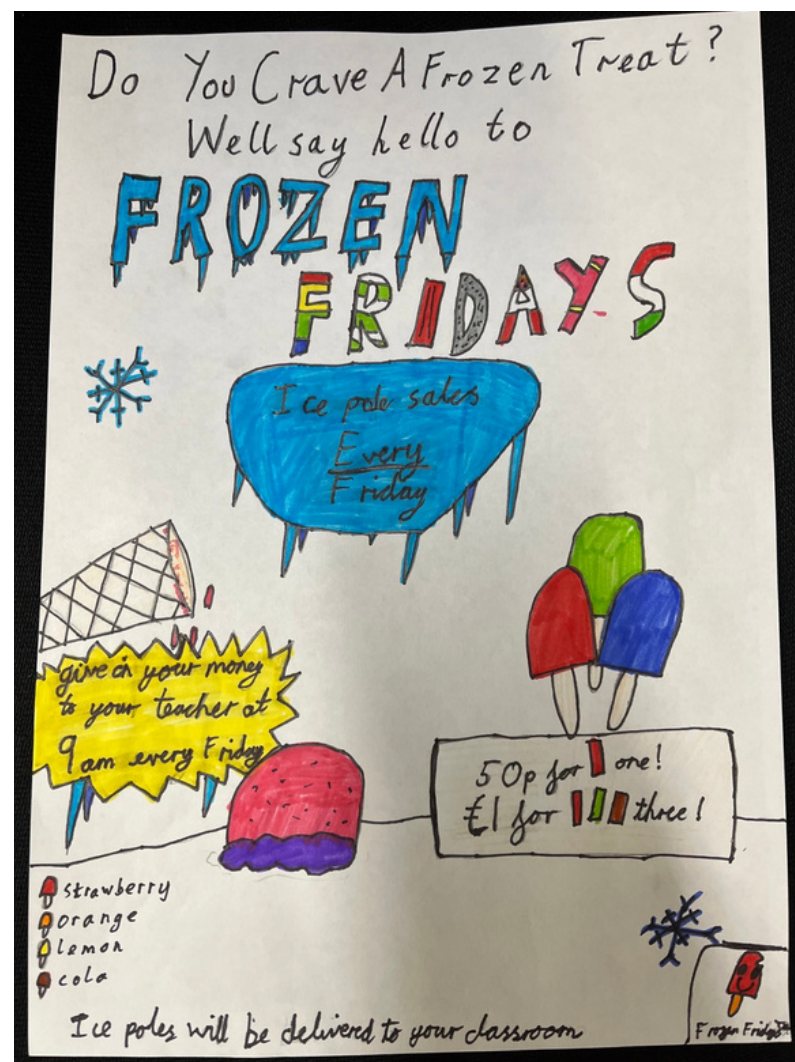 Do You Crave A Frozen Treat?
Well say hello to
FROZEN
FRIDAYS
Ice pole sales
Every
Friday
give in your money
to your teacher at
9am every Friday
50p for one!
£1 for three!
strawberry
orange
lemon
cola
Ice poles will be delivered to your classroom
Frozen Fridays